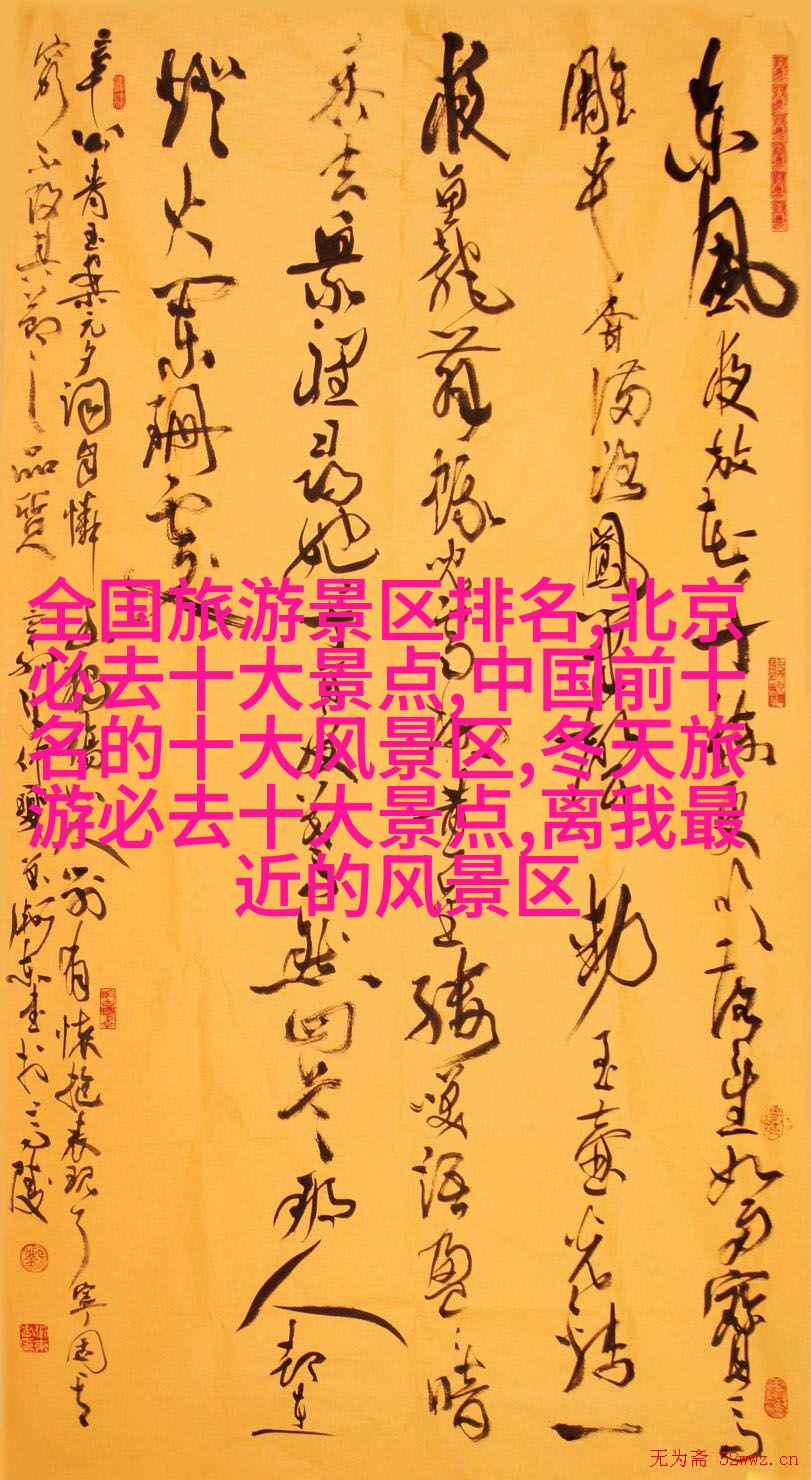 全国旅游景区排名,北京
必去十大景点,中国前十
名的十大风景区,冬天旅
游必去十大景点,离我最
近的风景区
东风夜放花千树更吹落星如雨寶马
雕车香满路凤箫声动玉壶光转一
夜鱼龙舞蛾儿雪柳黄金缕笑语盈盈暗
香去眾裡寻他千百度蓦然回首那人却在
灯火阑珊處
辛公青玉案元夕词自憐 别有怀抱表现了宁固
窮不改其节之品质
无为斋 52wwz.cn